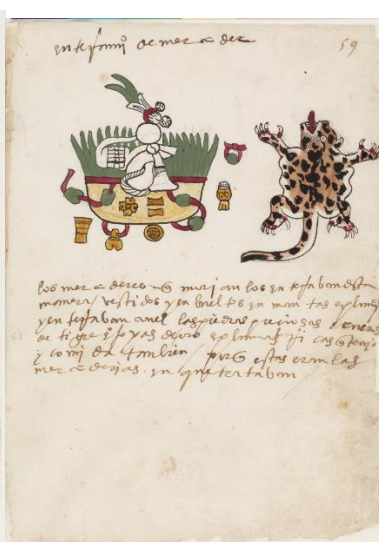 enteramiº de mercader
59
los mercaderes q morian los enterraban desta
manera / vestidos y en bueltos en mantas e plumas
y enterraban con el las piedras preciosas e cueros
de tigre e joyas de oro e plumas ricas q tenia
y comida tambien / porq estas eran las
mercaderias en que trataban